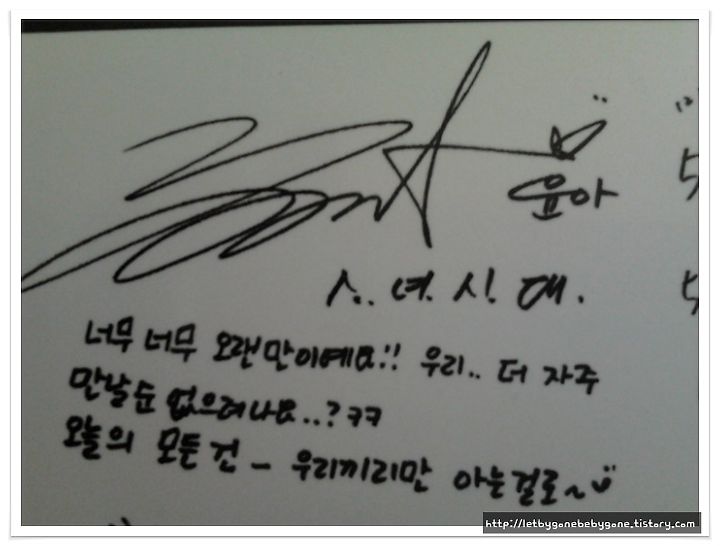 윤아
소.녀.시.대.
너무 너무 오랜만이예요!! 우리.. 더 자주
만날 순 없으려나요..? ㅋㅋ
오늘의 모든 건 - 우리끼리만 아는걸로~
http://letbygonebebygone.tistory.com